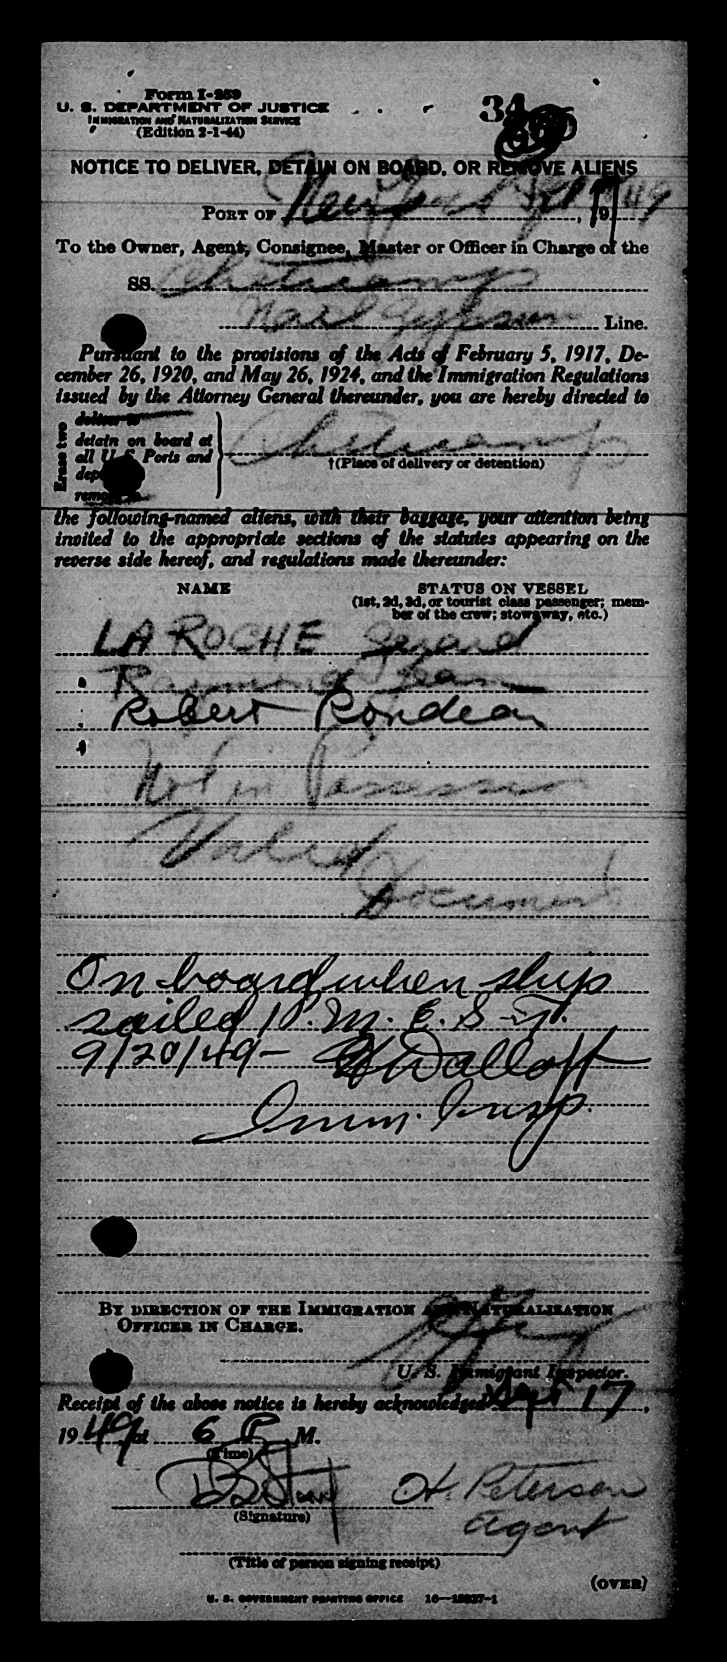 Form I-259
U. S. DEPARTMENT OF JUSTICE
IMMIGRATION AND NATURALIZATION SERVICE
(Edition 2-1-44)
34
NOTICE TO DELIVER, DETAIN ON BOARD, OR REMOVE ALIENS
PORT OF New York Sept 17, 1949
To the Owner, Agent, Consignee, Master or Officer in Charge of the
SS. Cheticamp
Line.
Pursuant to the provisions of the Acts of February 5, 1917, De-
cember 26, 1920, and May 26, 1924, and the Immigration Regulations
issued by the Attorney General thereunder, you are hereby directed to
Erase two
deliver to
detain on board at
all U. S. Ports and
remove to
Chetticamp
†(Place of delivery or detention)
the following-named aliens, with their baggage, your attention being
invited to the appropriate sections of the statutes appearing on the
reverse side hereof, and regulations made thereunder:
NAME STATUS ON VESSEL
(1st, 2d, 3d, or tourist class passenger; mem-
ber of the crew; stowaway, etc.)
LA ROCHE Gerard
Raymond Jean
Robert Rondeau
Not in Possession
Valid
Document
On board when ship
sailed 1 P. M. E. S. T.
9/20/49 - Walloff
Imm. Insp.
BY DIRECTION OF THE IMMIGRATION AND NATURALIZATION
OFFICER IN CHARGE.
U. S. Immigrant Inspector.
Receipt of the above notice is hereby acknowledged Sept 17,
1949 at 6 P. M.
(Time)
H. Peterson
(Signature)
Agent
(Title of person signing receipt)
(OVER)
U. S. GOVERNMENT PRINTING OFFICE 16—15327-1